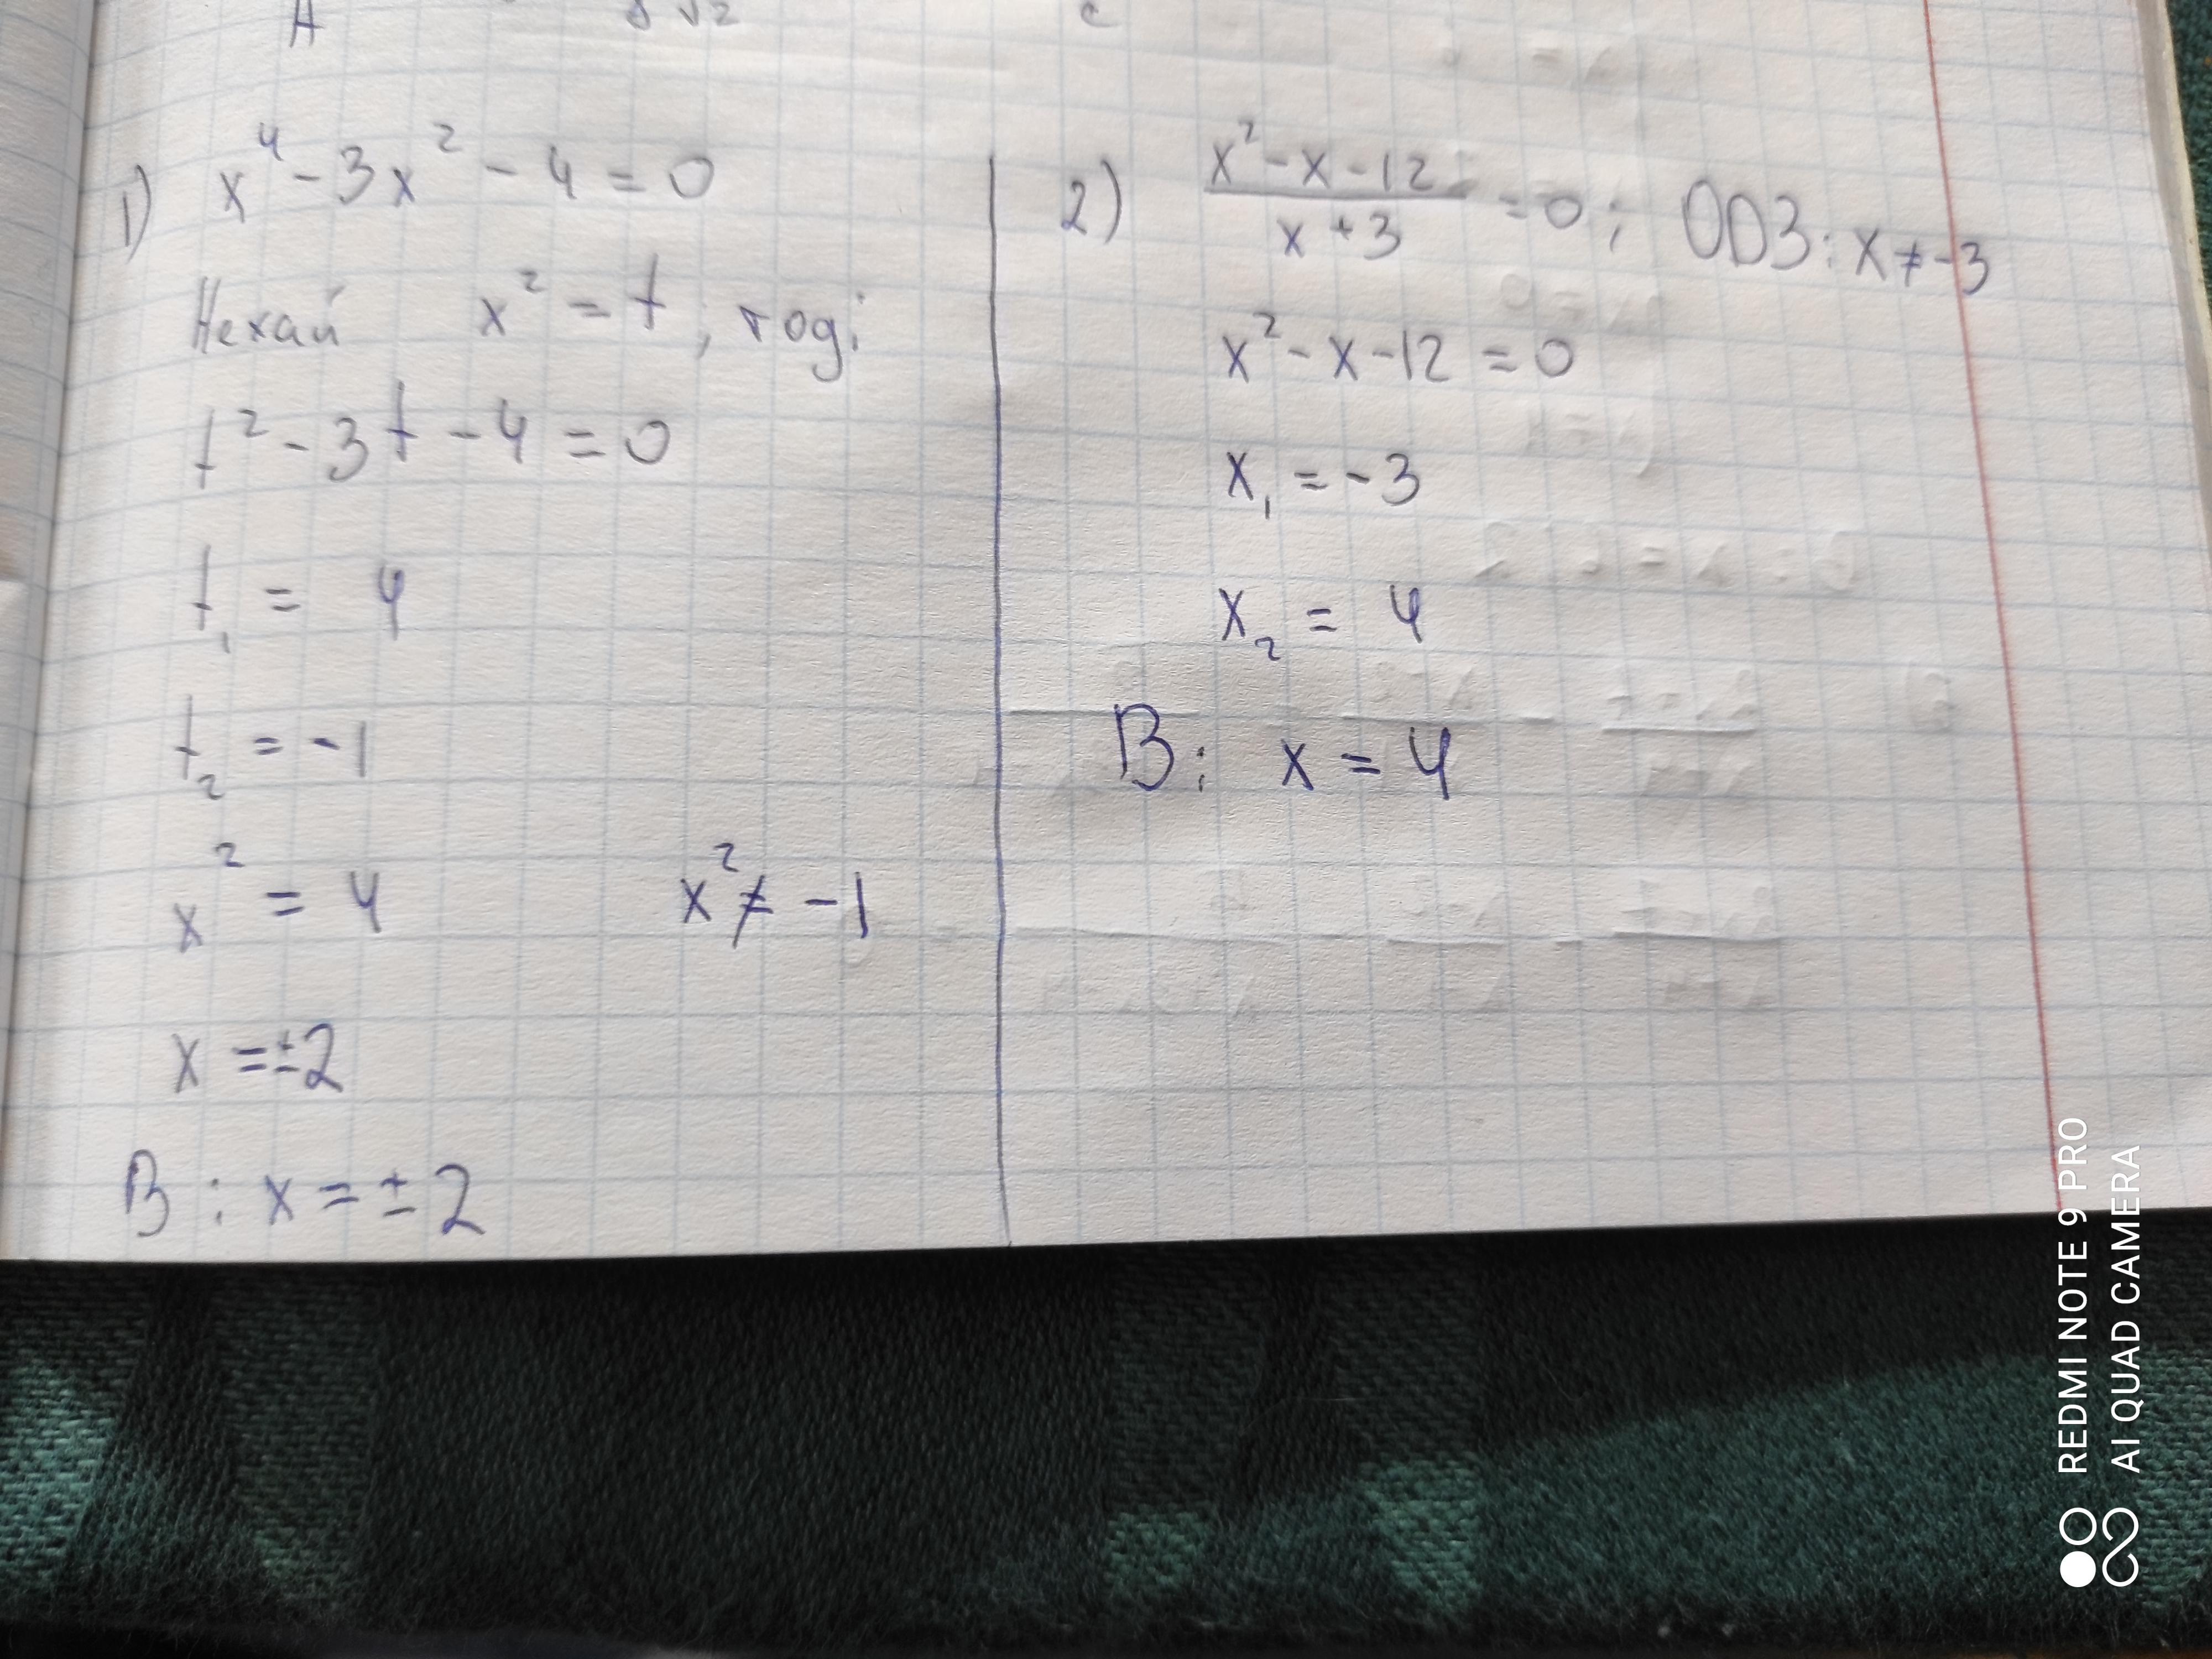 A 8√2 c
1) x⁴ - 3x² - 4 = 0
Нехай x² = t, тоді
t² - 3t - 4 = 0
t₁ = 4
t₂ = -1
x² = 4 x² ≠ -1
x = ±2
В: x = ±2
2) (x² - x - 12)/(x + 3) = 0; ОДЗ: x ≠ -3
x² - x - 12 = 0
x₁ = -3
x₂ = 4
В: x = 4
REDMI NOTE 9 PRO
AI QUAD CAMERA